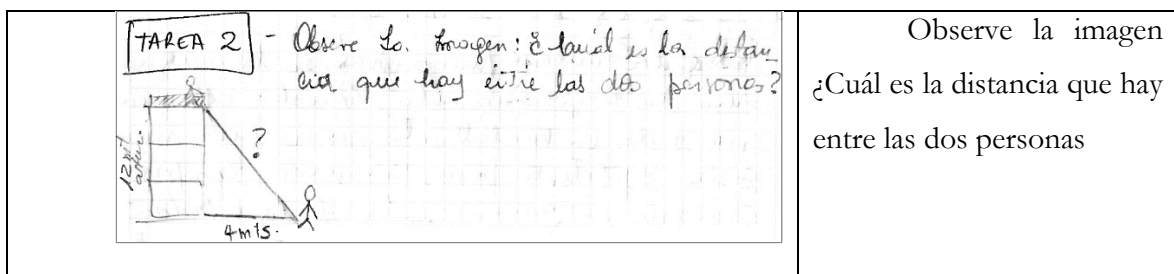 TAREA 2 - Observe La Imagen: ¿Cuál es la distan
cia que hay entre las dos personas?
?
12 mt
altura
4 mts.
Observe la imagen
¿Cuál es la distancia que hay
entre las dos personas